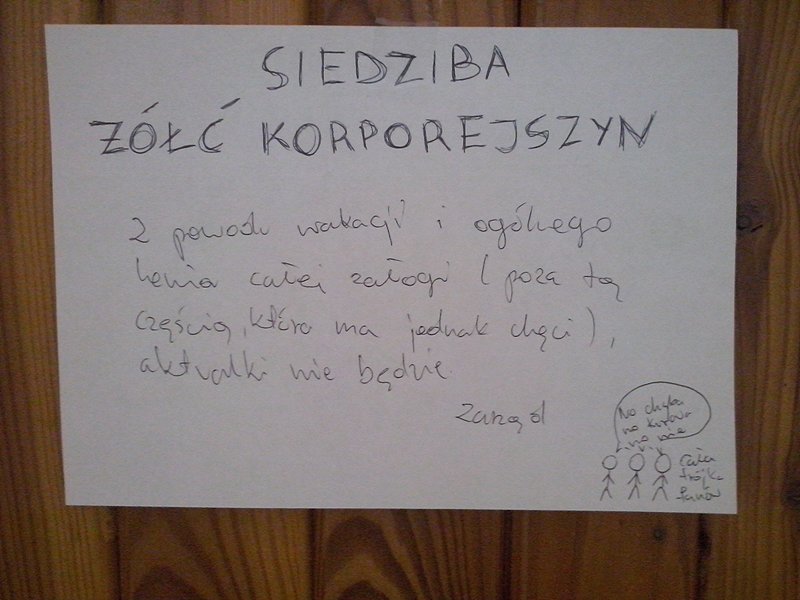 SIEDZIBA
ŻÓŁĆ KORPOREJSZYN
Z powodu wakacji i ogólnego
lenia całej załogi (poza tą
częścią, która ma jednak chęci),
aktualki nie będzie.
Zarząd
No chyba
no kurwa
no nie
Cała
trójka
fanów